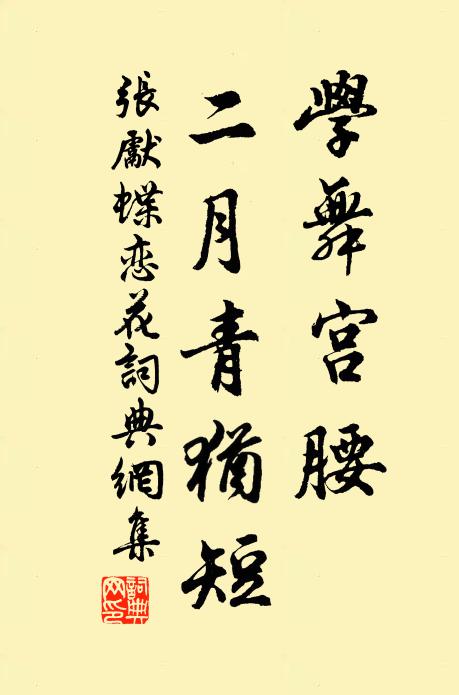 學舞宫腰
二月青猶短
張獻蝶恋花詞典網集
詞典網印